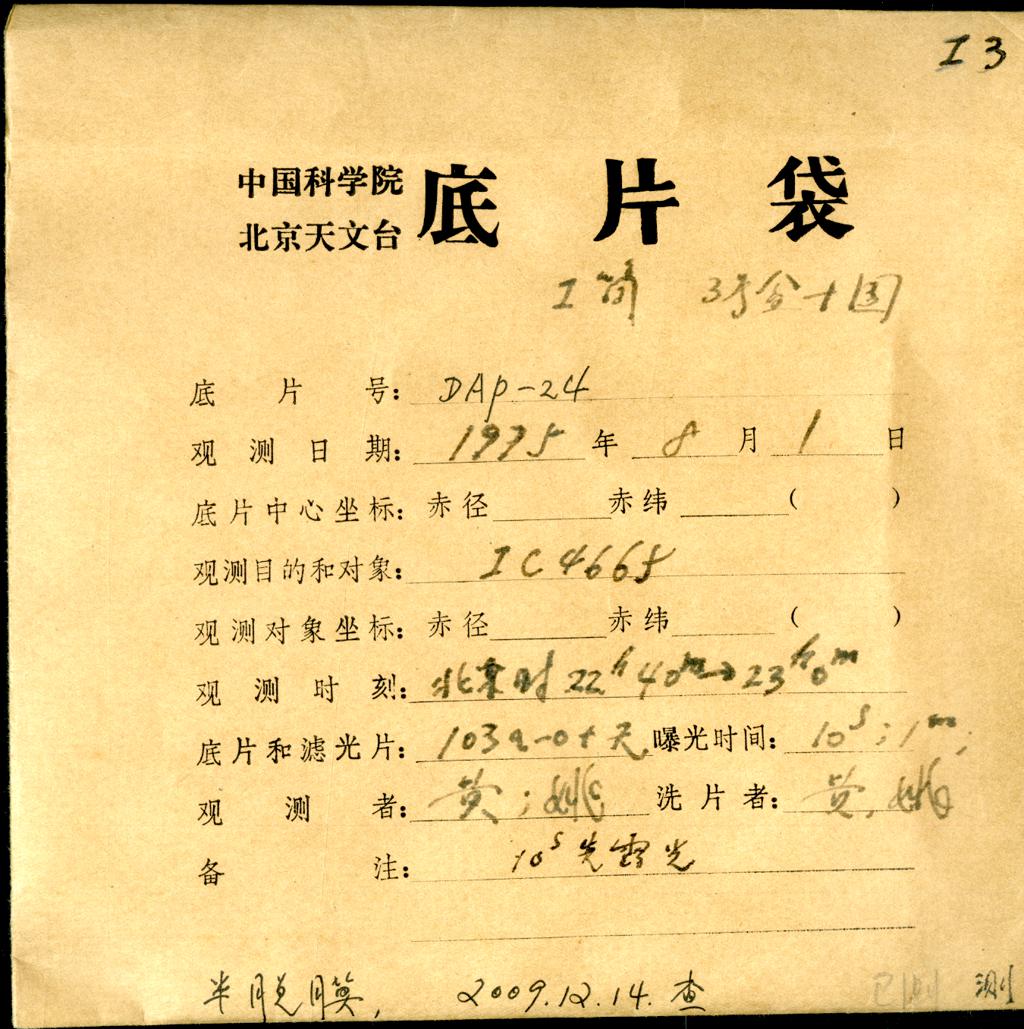 I 3
中国科学院
北京天文台 底片袋
I 筒 3号
底片号: DAP-24
观测日期: 1975 年 8 月 1 日
底片中心坐标: 赤径 赤纬 ( )
观测目的和对象: IC4665
观测对象坐标: 赤径 赤纬 ( )
观测时刻: 北京时 22h 40m→23h0m
底片和滤光片: 103a-O+无 曝光时间: 10s; 1m;
观测者: 黄; 姚 洗片者: 黄, 姚
备注: 10s 先露光
半脱膜, 2009.12.14. 查 已测 测